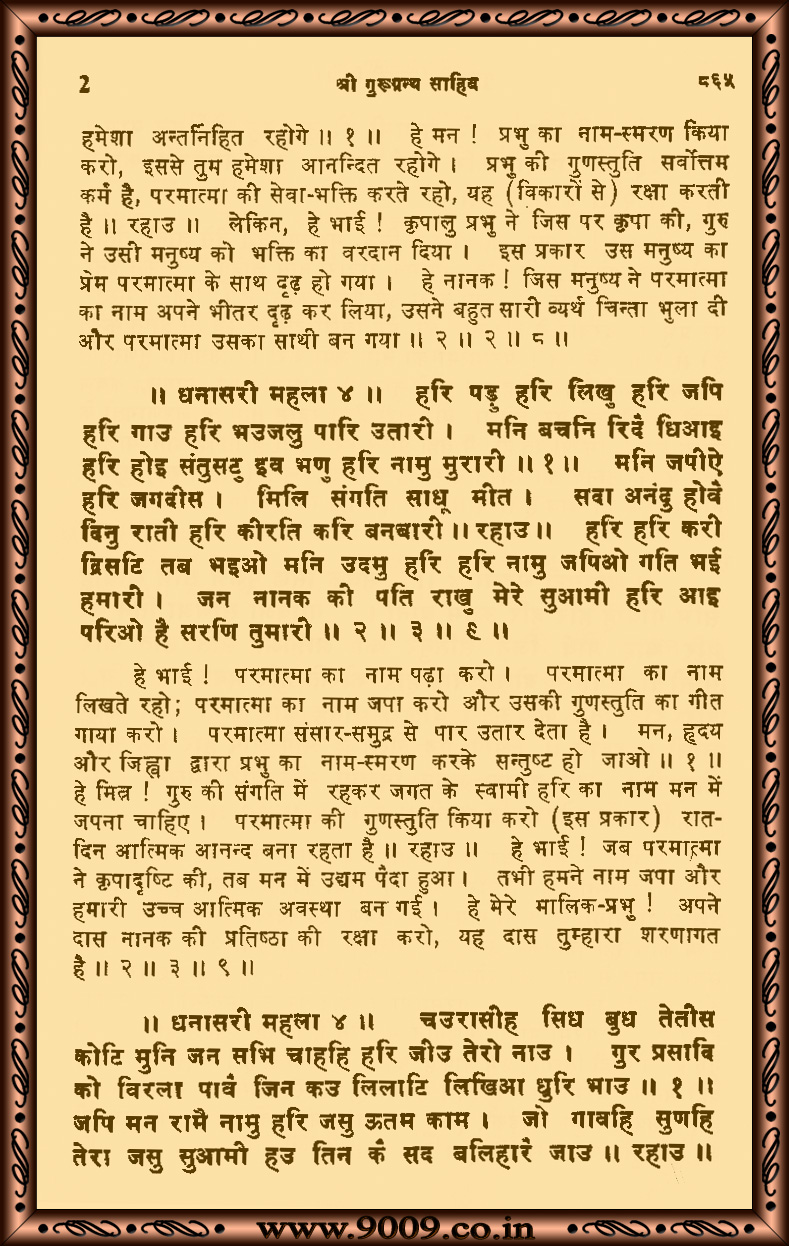 2 श्री गुरूग्रन्थ साहिब ८६५
हमेशा अन्तर्निहित रहोगे ॥ १ ॥ हे मन ! प्रभु का नाम-स्मरण किया
करो, इससे तुम हमेशा आनन्दित रहोगे । प्रभु की गुणस्तुति सर्वोत्तम
कर्म है, परमात्मा की सेवा-भक्ति करते रहो, यह (विकारों से) रक्षा करती
है ॥ रहाउ ॥ लेकिन, हे भाई ! कृपालु प्रभु ने जिस पर कृपा की, गुरु
ने उसी मनुष्य को भक्ति का वरदान दिया । इस प्रकार उस मनुष्य का
प्रेम परमात्मा के साथ दृढ़ हो गया । हे नानक ! जिस मनुष्य ने परमात्मा
का नाम अपने भीतर दृढ़ कर लिया, उसने बहुत सारी व्यर्थ चिन्ता भुला दी
और परमात्मा उसका साथी बन गया ॥ २ ॥ २ ॥ ८ ॥
॥ धनासरी महला ४ ॥ हरि पड़ु हरि लिखु हरि जपि
हरि गाउ हरि भउजलु पारि उतारी । मनि बचनि रिदै धिआइ
हरि होइ संतुसटु इव भणु हरि नामु मुरारी ॥ १ ॥ मनि जपीऐ
हरि जगदीस । मिलि संगति साधू मीत । सदा अनंदु होवै
दिनु राती हरि कीरति करि बनवारी ॥ रहाउ ॥ हरि हरि करी
द्रिसटि तब भइओ मनि उदमु हरि हरि नामु जपिओ गति भई
हमारी । जन नानक की पति राखु मेरे सुआमी हरि आइ
परिओ है सरणि तुमारी ॥ २ ॥ ३ ॥ ९ ॥
हे भाई ! परमात्मा का नाम पढ़ा करो । परमात्मा का नाम
लिखते रहो; परमात्मा का नाम जपा करो और उसकी गुणस्तुति का गीत
गाया करो । परमात्मा संसार-समुद्र से पार उतार देता है । मन, हृदय
और जिह्वा द्वारा प्रभु का नाम-स्मरण करके सन्तुष्ट हो जाओ ॥ १ ॥
हे मित्र ! गुरु की संगति में रहकर जगत के स्वामी हरि का नाम मन में
जपना चाहिए । परमात्मा की गुणस्तुति किया करो (इस प्रकार) रात-
दिन आत्मिक आनन्द बना रहता है ॥ रहाउ ॥ हे भाई ! जब परमात्मा
ने कृपादृष्टि की, तब मन में उद्यम पैदा हुआ । तभी हमने नाम जपा और
हमारी उच्च आत्मिक अवस्था बन गई । हे मेरे मालिक-प्रभु ! अपने
दास नानक की प्रतिष्ठा की रक्षा करो, यह दास तुम्हारा शरणागत
है ॥ २ ॥ ३ ॥ ९ ॥
॥ धनासरी महला ४ ॥ चउरासीह सिध बुध तेतीस
कोटि मुनि जन सभि चाहहि हरि जीउ तेरो नाउ । गुर प्रसादि
को विरला पावै जिन कउ लिलाटि लिखिआ धुरि भाउ ॥ १ ॥
जपि मन रामै नामु हरि जसु ऊतम काम । जो गावहि सुणहि
तेरा जसु सुआमी हउ तिन कै सद बलिहारै जाउ ॥ रहाउ ॥
www.9009.co.in